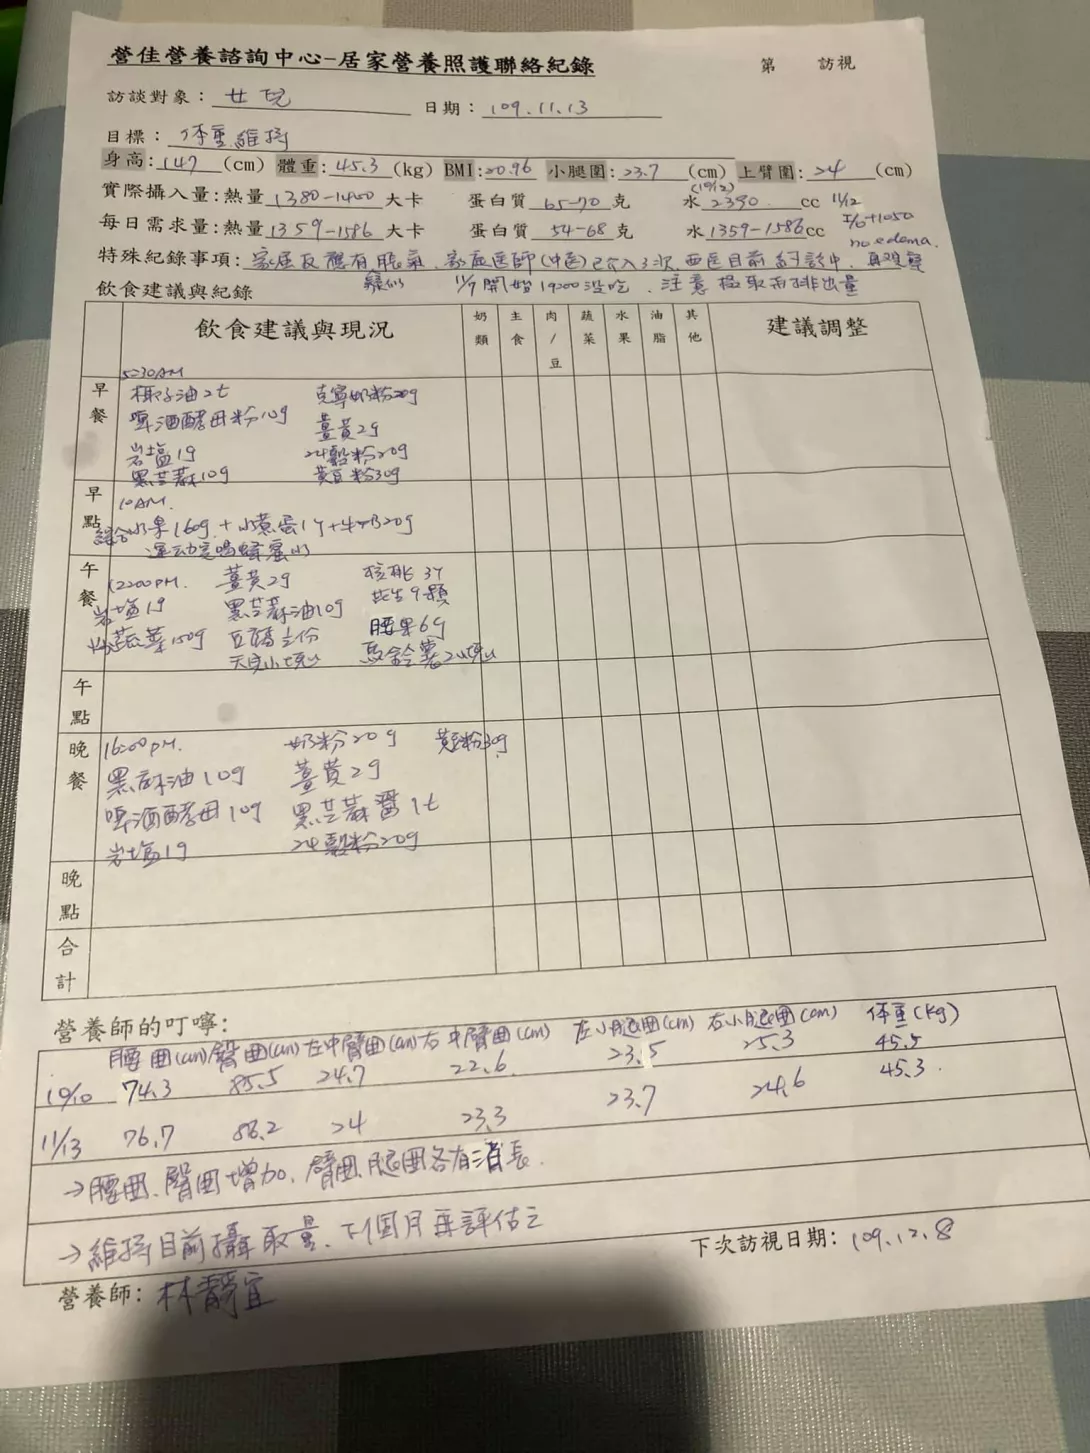 營佳營養諮詢中心-居家營養照護聯絡紀錄
第 訪視
訪談對象: 女兒 日期: 109.11.13
目標: 体重維持
身高: 147 (cm) 體重: 45.3 (kg) BMI: 20.96 小腿圍: 23.7 (cm) 上臂圍: 24 (cm)
實際攝入量:熱量 1380-1400 大卡 蛋白質 65-70 克 (10/12) 水 2390 cc 11/12
I/O +1050
每日需求量:熱量 1359-1586 大卡 蛋白質 54-68 克 水 1359-1586 cc no edema.
特殊紀錄事項: 家屬反應有脹氣, 家庭医師(中医)已介入3次, 西医目前 診中,
疑似 11/9 開始 沒吃. 注意攝取而排出量
飲食建議與紀錄
飲食建議與現況 奶類 主食 肉/豆 蔬菜 水果 油脂 其他 建議調整
早餐
5:30AM
椰子油2t 克寧奶粉20g
啤酒酵母粉10g 薑黃2g
岩塩1g 24穀粉20g
黑芝蔴10g 黃豆粉30g
早點
10AM.
綜合水果160g + 水煮蛋1個 + 20g
運动完喝蜂蜜水
午餐
12:00PM. 薑黃2g 核桃 3個
岩塩1g 黑芝蔴油10g 花生9顆
蔬菜150g 豆腐 份 腰果6g
小塊 馬鈴薯2小塊
午點
晚餐
16:00PM. 奶粉20g 黃豆粉30g
黑麻油10g 薑黃2g
啤酒酵母10g 黑芝蔴醬1t
岩塩1g 24穀粉20g
晚點
合計
營養師的叮嚀:
腰圍(cm) 臀圍(cm) 左中臂圍(cm) 右中臂圍(cm) 左小腿圍(cm) 右小腿圍(cm) 体重(kg)
10/10 74.3 85.5 24.7 22.6 23.5 25.3 45.5
11/13 76.7 86.2 24 23.3 23.7 24.6 45.3
→腰圍、臀圍增加, 臂圍腿圍各有消長.
→維持目前攝取量、下個月再評估之
下次訪視日期: 109.12.8
營養師: 林靜宜